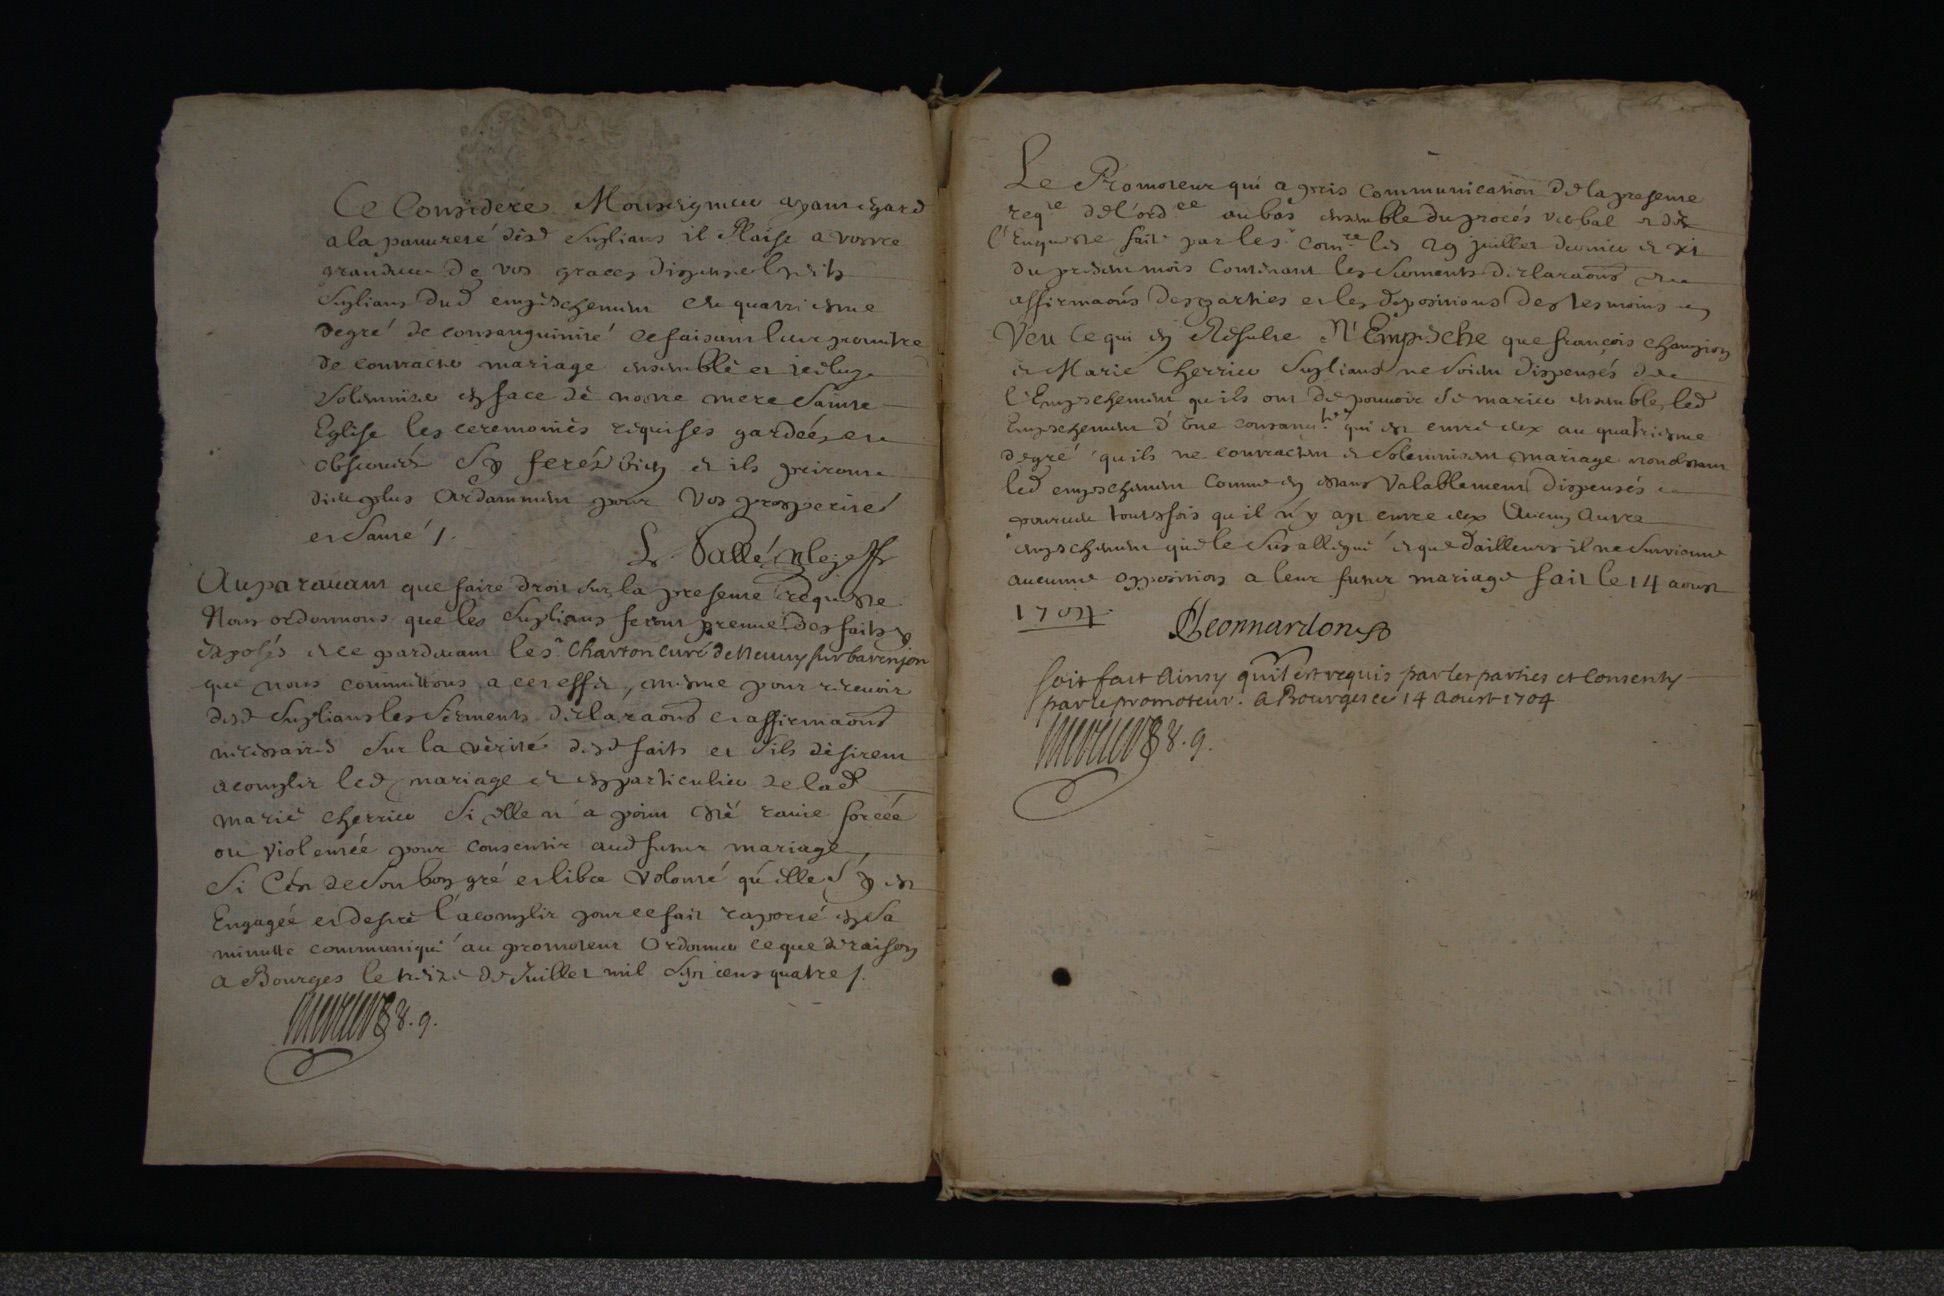 Ce Consideré Monseigneur ayant egard
a la pauvreté desd supliants il Plaise a vostre
grandeur de vos graces dispenser lesdits
supliants dud empeschement du quatriesme
degré de consanguinité ce faisant leur permettre
de contracter mariage ensemble et iceluy
solemnizer en face de nostre mere Sainte
Eglise les ceremonies requises gardées et
observées Sy ferés bien et ils prieront
dieu plus Ardamment pour Vos prosperité
et santé /.
Auparavant que faire droit sur la presente requeste
Nous ordonnons que les supliants feront preuve des faits y
exposés et ce pardevant le sr Charton curé de Neuvy sur baranjon
que nous committons a cet effet, mesme pour recevoir
desd supliants les serments declaraons et affirmaons
necessaires sur la verité desd faits et s'ils desirent
acomplir led mariage et en particulier de lad
marie cherrier si elle n'a point esté ravie forcée
ou violentée pour consentir aud futur mariage,
Si C'est de son bon gré et libre volonté qu'elle s'y est
Engagée et desire l'acomplir pour ce fait raporté en sa
minutte communiqué au promoteur Ordonner ce que de raison
a Bourges le treize de Juillet mil sept cens quatre /.
8. g.
Le Promoteur qui a pris communication de la presente
reqte de l'ordce au bas ensemble du procés verbal et de
l'Enqueste fait par le sr comre les 29 juillet dernier et xi
du present mois Contenant les serments declaraons et
affirmaons des parties et les depositions des tesmoins
Veu Ce qui en Resulte N'Empesche que françois champion
et Marie Cherrier supliants ne soient dispensés de
l'Empeschement qu'ils ont de pouvoir se marier ensemble, led
Empeschement d'Une consangté qui est entre eux au quatriesme
degré qu'ils ne contractent et solemnisent mariage nonobstant
led empeschement comme en estans valablement dispensés
pourveu toutesfois qu'il n'y ayt entre eux Aucun Autre
empeschement que le susallegué et que d'ailleurs il ne survienne
aucunne opposition a leur futur mariage fait le 14 aoust
1704.
Leonnardon
soit fait Ainsy qu'il est requis par les parties et Consenty
par le promoteur. a Bourges ce 14 Aoust 1704
8. g.